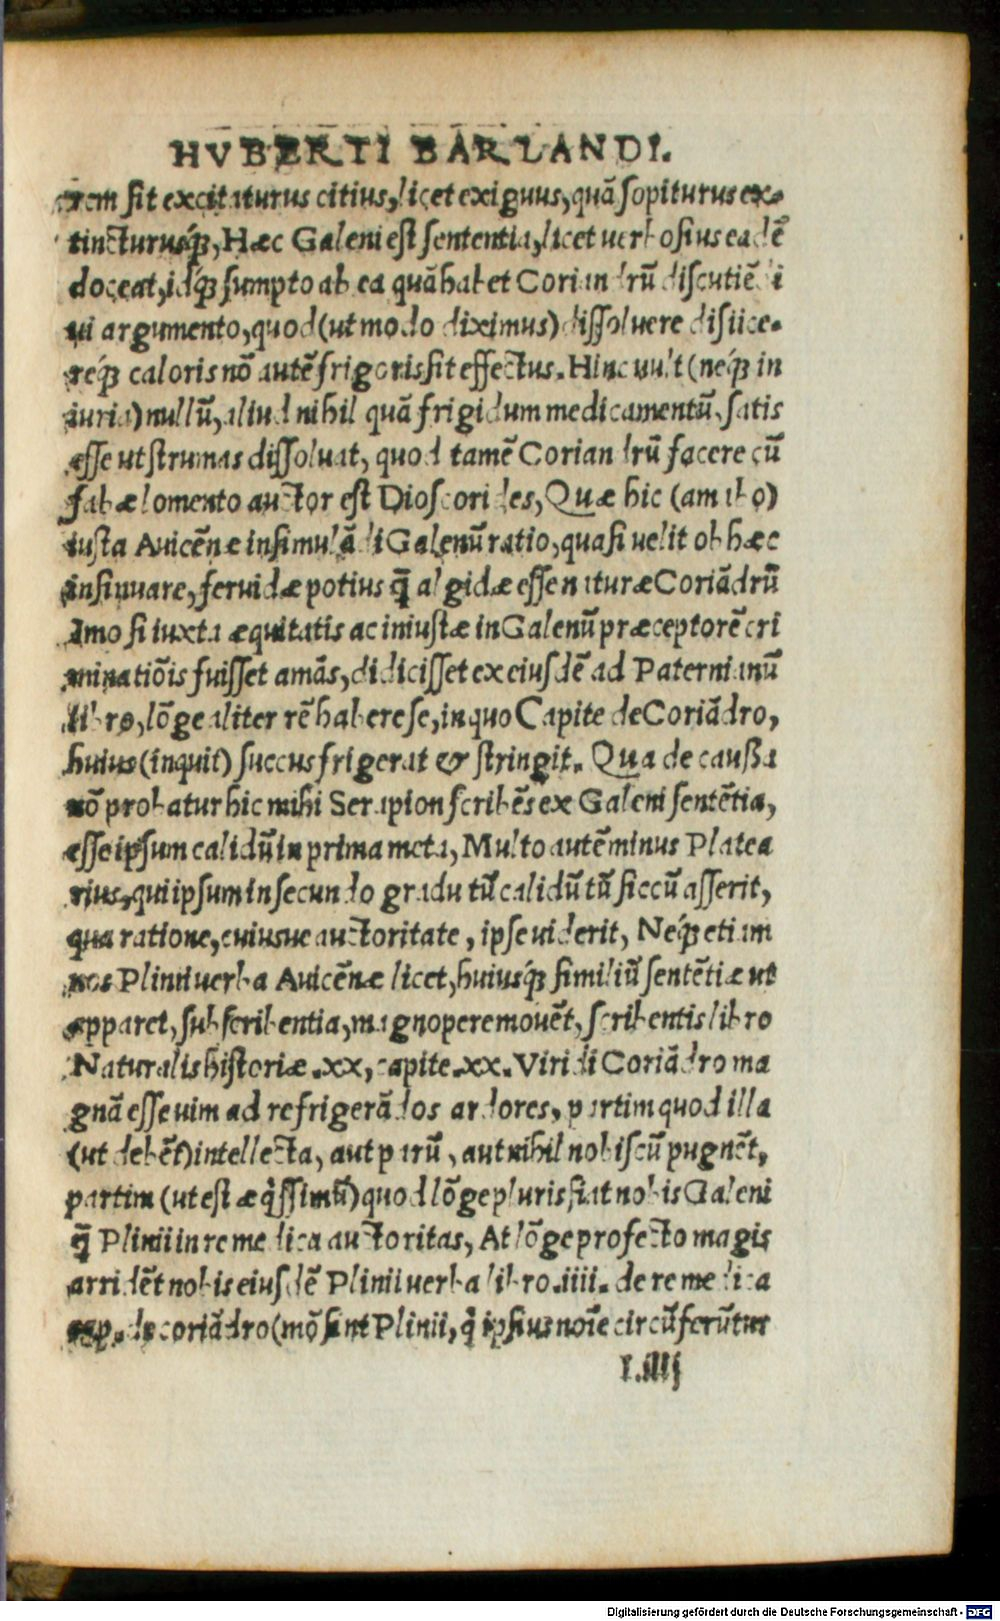 HVBERTI BARLANDI.
rem sit excitaturus citius, licet exiguus, quā sopiturus ex-
tincturusq́ꝫ, Hæc Galeni est sententia, licet uerbosius eadē
doceat, idq́ꝫ sumpto ab ea quā habet Coriandrū discutiēdi
ui argumento, quod (ut modo diximus) dissoluere disiice-
req́ꝫ caloris nō autē frigoris sit effectus. Hinc uult (neq́ꝫ in
iuria) nullū, aliud nihil quā frigidum medicamentū, satis
esse ut strumas dissoluat, quod tamē Coriandrū facere cū
fabæ lomento auctor est Dioscorides, Quæ hic (am ibo)
iusta Auicēnæ insimulādi Galenū ratio, quasi uelit ob hæc
insinuare, feruidæ potius q̄ algidæ esse naturæ Coriādrū
Imo si iuxta æquitatis ac iniustæ in Galenū præceptorē cri
minatiōis fuisset amās, didicisset ex eiusdē ad Paternianū
libro, lōge aliter rē habere se, in quo Capite de Coriādro,
huius (inquit) succus frigerat & stringit. Qua de caußa
nō probatur hic mihi Serapion scribēs ex Galeni sentētia,
esse ipsum calidū in prima meta, Multo autē minus Platea
rius, qui ipsum in secundo gradu tū calidū tū siccū asserit,
qua ratione, cuiusue auctoritate, ipse uiderit, Neq́ꝫ etiam
nos Plinii uerba Auicēnæ licet, huiusq́ꝫ similiū sentētiæ ut
apparet, subscribentia, magnopere mouēt, scribentis libro
Naturalis historiæ .xx, capite .xx. Viridi Coriādro ma
gnā esse uim ad refrigerādos ardores, partim quod illa
(ut debēt) intellecta, aut parū, aut nihil nobiscū pugnēt,
partim (ut est æq̇ssimū) quod lōge pluris fiat nobis Galeni
q̄ Plinii in re medica auctoritas, At lōge profecto magis
arridēt nobis eiusdē Plinii uerba libro .iiii. de re medica
cap. de coriādro (mō sint Plinii, q̇ ipsius noīe circūferūtur
I.iiij
Digitalisierung gefördert durch die Deutsche Forschungsgemeinschaft - DFG